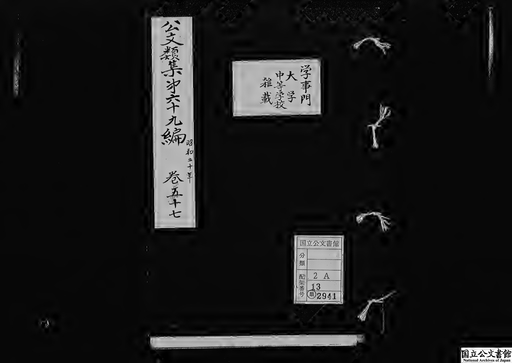 公文類集第六十九編
昭和二十年
巻五十七
学事門
大学
中等学校
雑載
国立公文書館
分類
配架番号
2 A
13
類2941
国立公文書館
National Archives of Japan